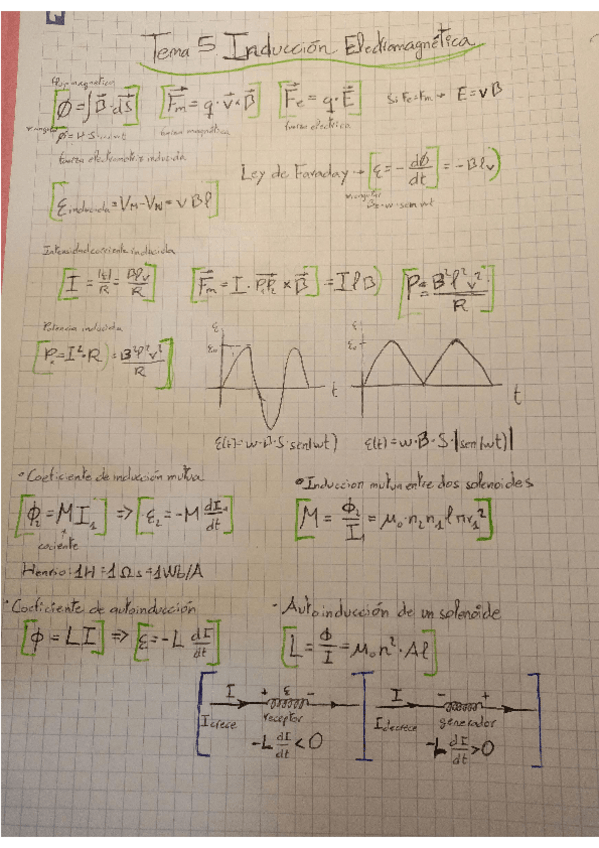 Tema 5 Inducción Electromagnética
Flujo magnético
[Φ = ∫B⃗·dS⃗] [F⃗m = q·v⃗×B⃗] [F⃗e = q·E⃗] Si Fe=Fm → E = vB
fuerza magnética fuerza electrica
fuerza electromotriz inducida
Ley de Faraday → [ε = - dΦ/dt] = -Blv
[ε inducida = VM - VN = vBl]
Intensidad corriente inducida
[I = |ε|/R = Blv/R] [F⃗m = I · P₁P₂ × B⃗] = IlB [P = B²l²v²/R]
Potencia inducida
[P = I²·R = B²l²v²/R]
ε ε₀ t ε ε₀ t
ε(t) = w·B·S·sen(wt) ε(t) = w·B·S·|sen(wt)|
· Coeficiente de inducción mutua
[Φ₂ = M I₁] => [ε₂ = -M dI₁/dt]
cociente
Henrio: 1H = 1Ωs = 1Wb/A
• Induccion mutua entre dos solenoides
[M = Φ₂/I₁ = μ₀·n₂n₁lπr₁²]
· Coeficiente de autoinducción
[Φ = LI] => [ε = -L dI/dt]
- Autoinducción de un solenoide
[L = Φ/I = μ₀n²·Al]
I + ε - I - +
I crece receptor I decrece generador
-L dI/dt < 0 -L dI/dt > 0